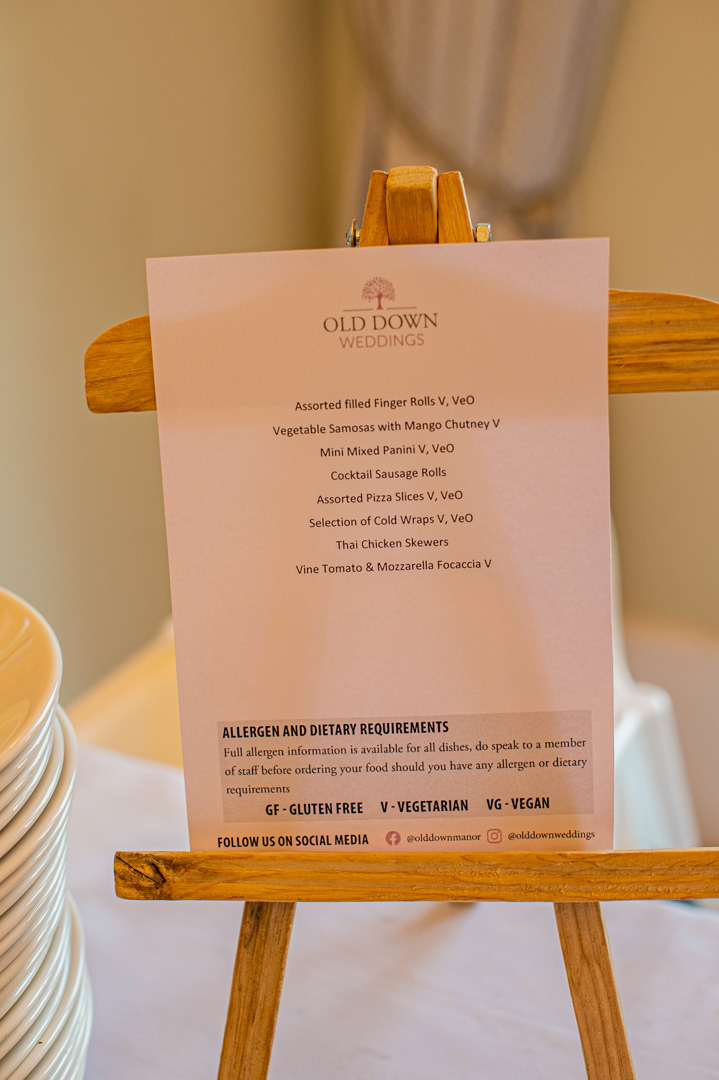 OLD DOWN
WEDDINGS
Assorted filled Finger Rolls V, VeO
Vegetable Samosas with Mango Chutney V
Mini Mixed Panini V, VeO
Cocktail Sausage Rolls
Assorted Pizza Slices V, VeO
Selection of Cold Wraps V, VeO
Thai Chicken Skewers
Vine Tomato & Mozzarella Focaccia V
ALLERGEN AND DIETARY REQUIREMENTS
Full allergen information is available for all dishes, do speak to a member
of staff before ordering your food should you have any allergen or dietary
requirements
GF - GLUTEN FREE V - VEGETARIAN VG - VEGAN
FOLLOW US ON SOCIAL MEDIA @olddownmanor @olddownweddings